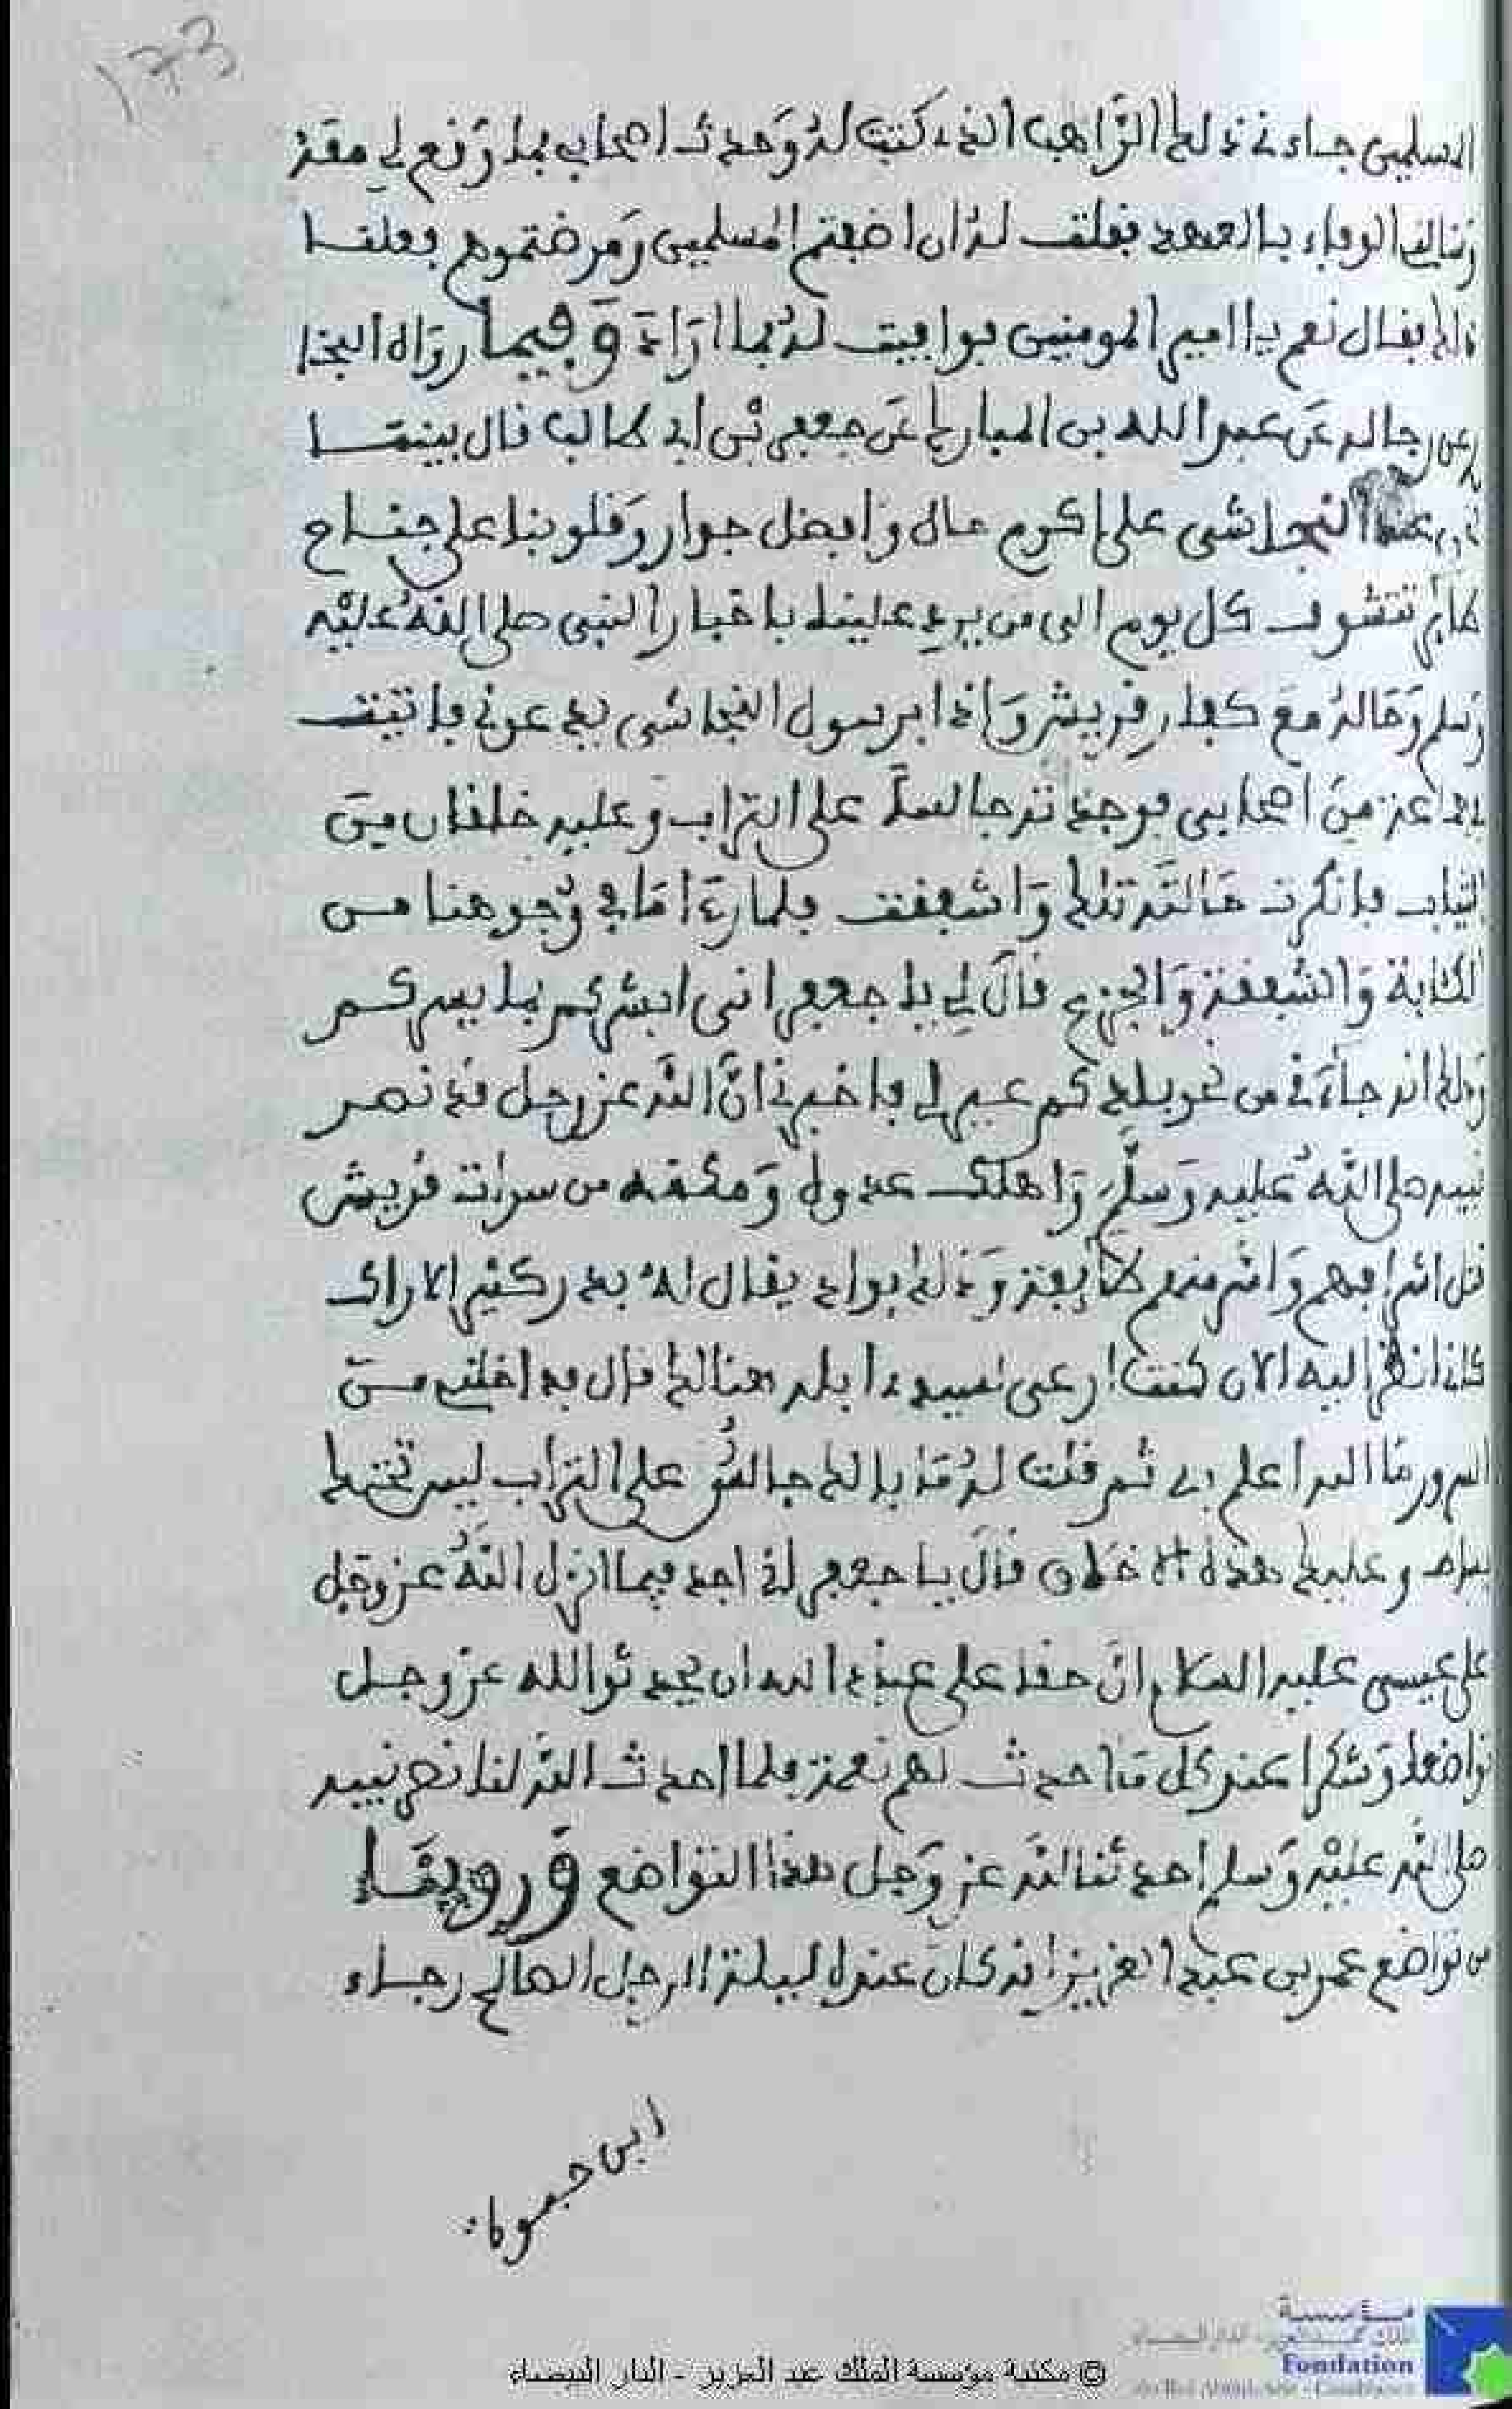 173
المسلمين جاءنى ذلك الرّاهب الذى كتبت له وَحدث اصحابى بما وَقع لي معه
وَسألني الوفاء بالعهد فقلت له ان اضفتم المسلمين وَمرضتموهم فعلنا
ذلك فقال نعم يا امير المومنين فوافيت له بما اراد وَفيما رواه البخا
رى عن رجاله عَن عبد الله بن المبارك عَن جعفر بن ابى طالب قال بينما
نحن عند النجاشى على اكرم حال وَافضل جوار وَقلوبنا على جناح
طائر نتشوف كل يوم الى من يرد علينا باخبار النبى صلى اللهُ عليْه
وَسلم وَحاله معَ كفار قريش وَاذا برسول النجاشى يدعونى فاتيته
فى عزمنَ اصحابى فوجدته جالساً على التراب وعليه خلقان مِنَ
الثياب فانكرت حَالته تلك وَاشفقت فلما رَءا مَا في وُجوهنا من
الكئابة وَالشفقة وَالجزع قالَ لي يا جعفر انى ابشركم بما يسركم
وَذلك انه جاءَنى من نحو بلادكم عين لي فاخبرنى انّ الله عز وجل قد نصر
نبيه صلى اللهُ عليه وَسلّم وَاهلك عدوه وَمكنه من سرات قريش
قتل اشرافهم وَاسر منهم طائفة وَذلك بواد يقال لهُ بدر كثير الاراك
كانى انظر اليه الان كنت ارعى لسيدى ابله هنالك قال فداخلنى منَ
السرور مَا الله اعلم به ثم قلت له مَا بالك جالسٌ على التراب ليس تحتك
بساط وعليك هذه الاخلاق قالَ يا جعفر انى اجد فيما انزل اللهُ عز وجل
على عيسى عليه السلام انّ حقا على عباد الله ان يحدثوا لله عز وجل
تواضعا وَشكرا عند كل مَا احدث لهم نعمة فلما احدث الله لنا نصر نبيه
صلى الله عليْه وَسلم احدثنا لله عز وَجل هذا التواضع وَروينا
من تواضع عمر بن عبد العزيز انه كان عنده ليلة الرجل الصالح رجاء
ابن حيوة
© مكتبة مؤسسة الملك عبد العزيز - الدار البيضاء
مؤسسة
Fondation